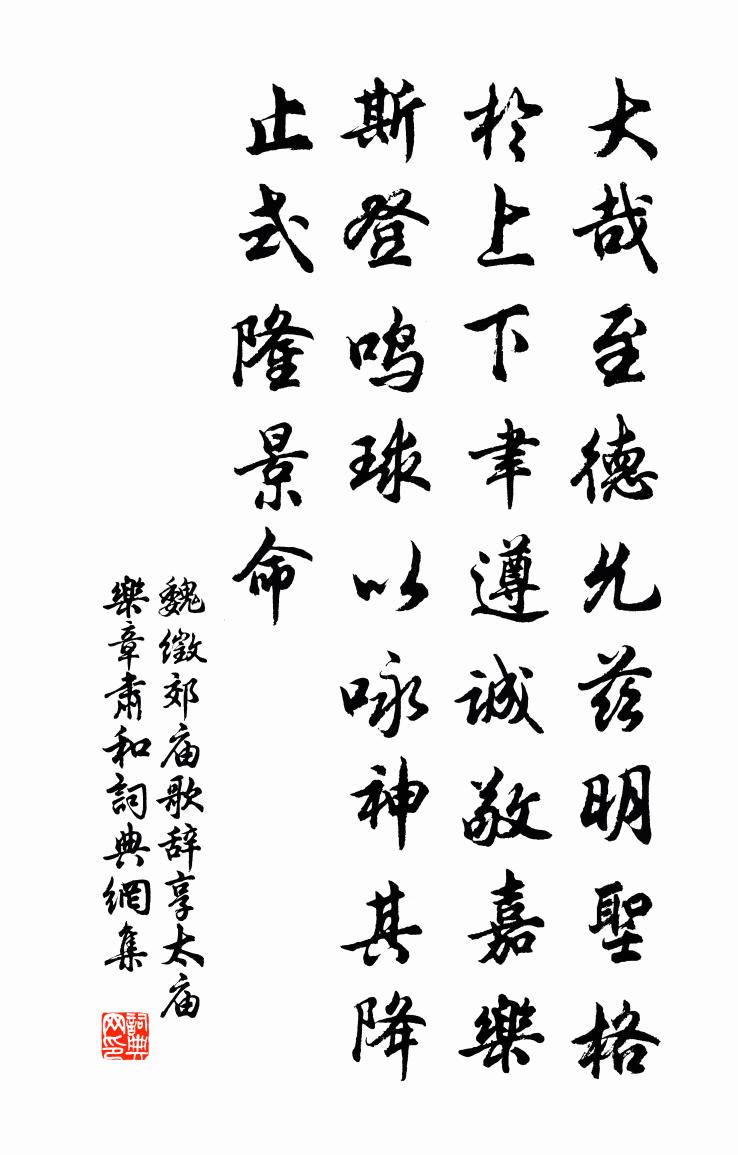 大哉至德允兹明聖格
於上下聿遵誠敬嘉樂
斯登鸣球以咏神其降
止式隆景命
魏徵郊庙歌辞享太庙
樂章肅和詞典網集
詞典网印